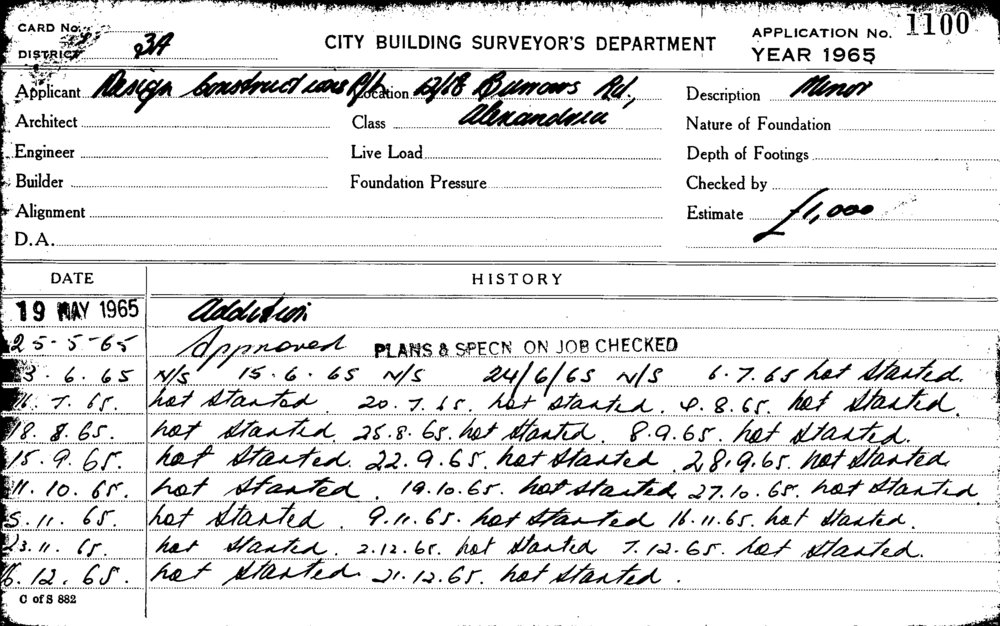 CARD No.
CITY BUILDING SURVEYOR'S DEPARTMENT
APPLICATION No. 1100
DISTRICT 3A
YEAR 1965
Applicant Design Constructions P/L Location Burrows Rd, Description Minor
Architect Class Alexandria Nature of Foundation
Engineer Live Load Depth of Footings
Builder Foundation Pressure Checked by
Alignment Estimate £1,000
D.A.
DATE HISTORY
19 MAY 1965 Addition
25-5-65 Approved PLANS & SPECN ON JOB CHECKED
3.6.65 N/S 15.6.65 N/S 24/6/65 N/S 6.7.65 not started.
16.7.65. not started. 20.7.65. not started. 4.8.65. not started.
18.8.65. not started. 25.8.65. not started. 8.9.65. not started.
15.9.65. not started. 22.9.65. not started. 28.9.65. not started
11.10.65. not started. 19.10.65. not started 27.10.65. not started
5.11.65. not started. 9.11.65. not started 16.11.65. not started.
23.11.65. not started. 2.12.65. not started 7.12.65. not started.
16.12.65. not started. 21.12.65. not started.
C of S 882